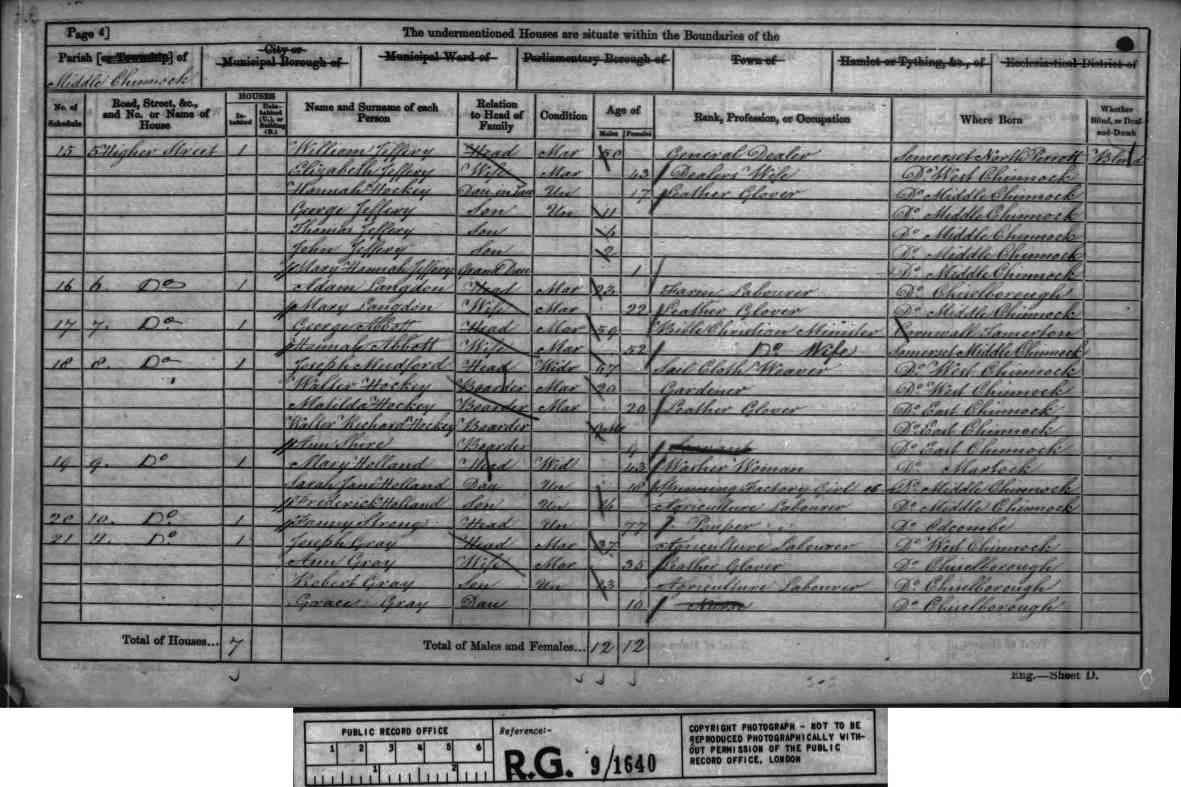 Page 4]
The undermentioned Houses are situate within the Boundaries of the
Parish [or Township] of
City or Municipal Borough of
Municipal Ward of
Parliamentary Borough of
Town of
Hamlet or Tything, &c., of
Ecclesiastical District of
Middle Chinnock
No. of Schedule
Road, Street, &c., and No. or Name of House
HOUSES
Inhabited
Uninhabited (U.), or Building (B.)
Name and Surname of each Person
Relation to Head of Family
Condition
Age of
Males
Females
Rank, Profession, or Occupation
Where Born
Whether Blind, or Deaf-and-Dumb
15 5 Higher Street 1 William Jeffery Head Mar 50 General Dealer Somerset North Perrott Blind
Elizabeth Jeffery Wife Mar 43 Dealers' Wife Do West Chinnock
Hannah Hockey Dau-in-law Un 17 Leather Glover Do Middle Chinnock
George Jeffery Son Un 11 Do Middle Chinnock
Thomas Jeffery Son 6 Do Middle Chinnock
John Jeffery Son 2 Do Middle Chinnock
Mary Hannah Jeffery Grand Dau 1 Do Middle Chinnock
16 6. Do 1 Adam Langdon Head Mar 23 Farm Labourer Do Chiselborough
Mary Langdon Wife Mar 22 Leather Glover Do Middle Chinnock
17 7. Do 1 George Abbott Head Mar 59 Bible Christian Minister Cornwall
Hannah Abbott Wife Mar 52 Do Wife Somerset Middle Chinnock
18 8. Do 1 Joseph Mudford Head Widr 67 Sail Cloth Weaver Do West Chinnock
Walter Hockey Boarder Mar 20 Gardener Do West Chinnock
Matilda Hockey Boarder Mar 20 Leather Glover Do East Chinnock
Walter Richard Hockey Boarder Do East Chinnock
Ann Shire Boarder 9 Do East Chinnock
19 9. Do 1 Mary Holland Head Wid 43 Washer Woman Do Martock
Sarah Jane Holland Dau Un 18 Spinning Factory Girl Do Middle Chinnock
Frederick Holland Son Un 16 Agriculture Labourer Do Middle Chinnock
20 10. Do 1 Fanny Strong Head Un 77 Pauper Do Odcombe
21 11. Do 1 Joseph Gray Head Mar 37 Agriculture Labourer Do West Chinnock
Ann Gray Wife Mar 35 Leather Glover Do Chiselborough
Robert Gray Son Un 13 Agriculture Labourer Do Chiselborough
Grace Gray Dau 10 Do Chiselborough
Total of Houses... 7
Total of Males and Females... 12 12
Eng.—Sheet D.
PUBLIC RECORD OFFICE
1 2 3 4 5 6
1 2
Reference:-
R.G. 9/1640
COPYRIGHT PHOTOGRAPH - NOT TO BE
REPRODUCED PHOTOGRAPHICALLY WITH-
OUT PERMISSION OF THE PUBLIC
RECORD OFFICE, LONDON